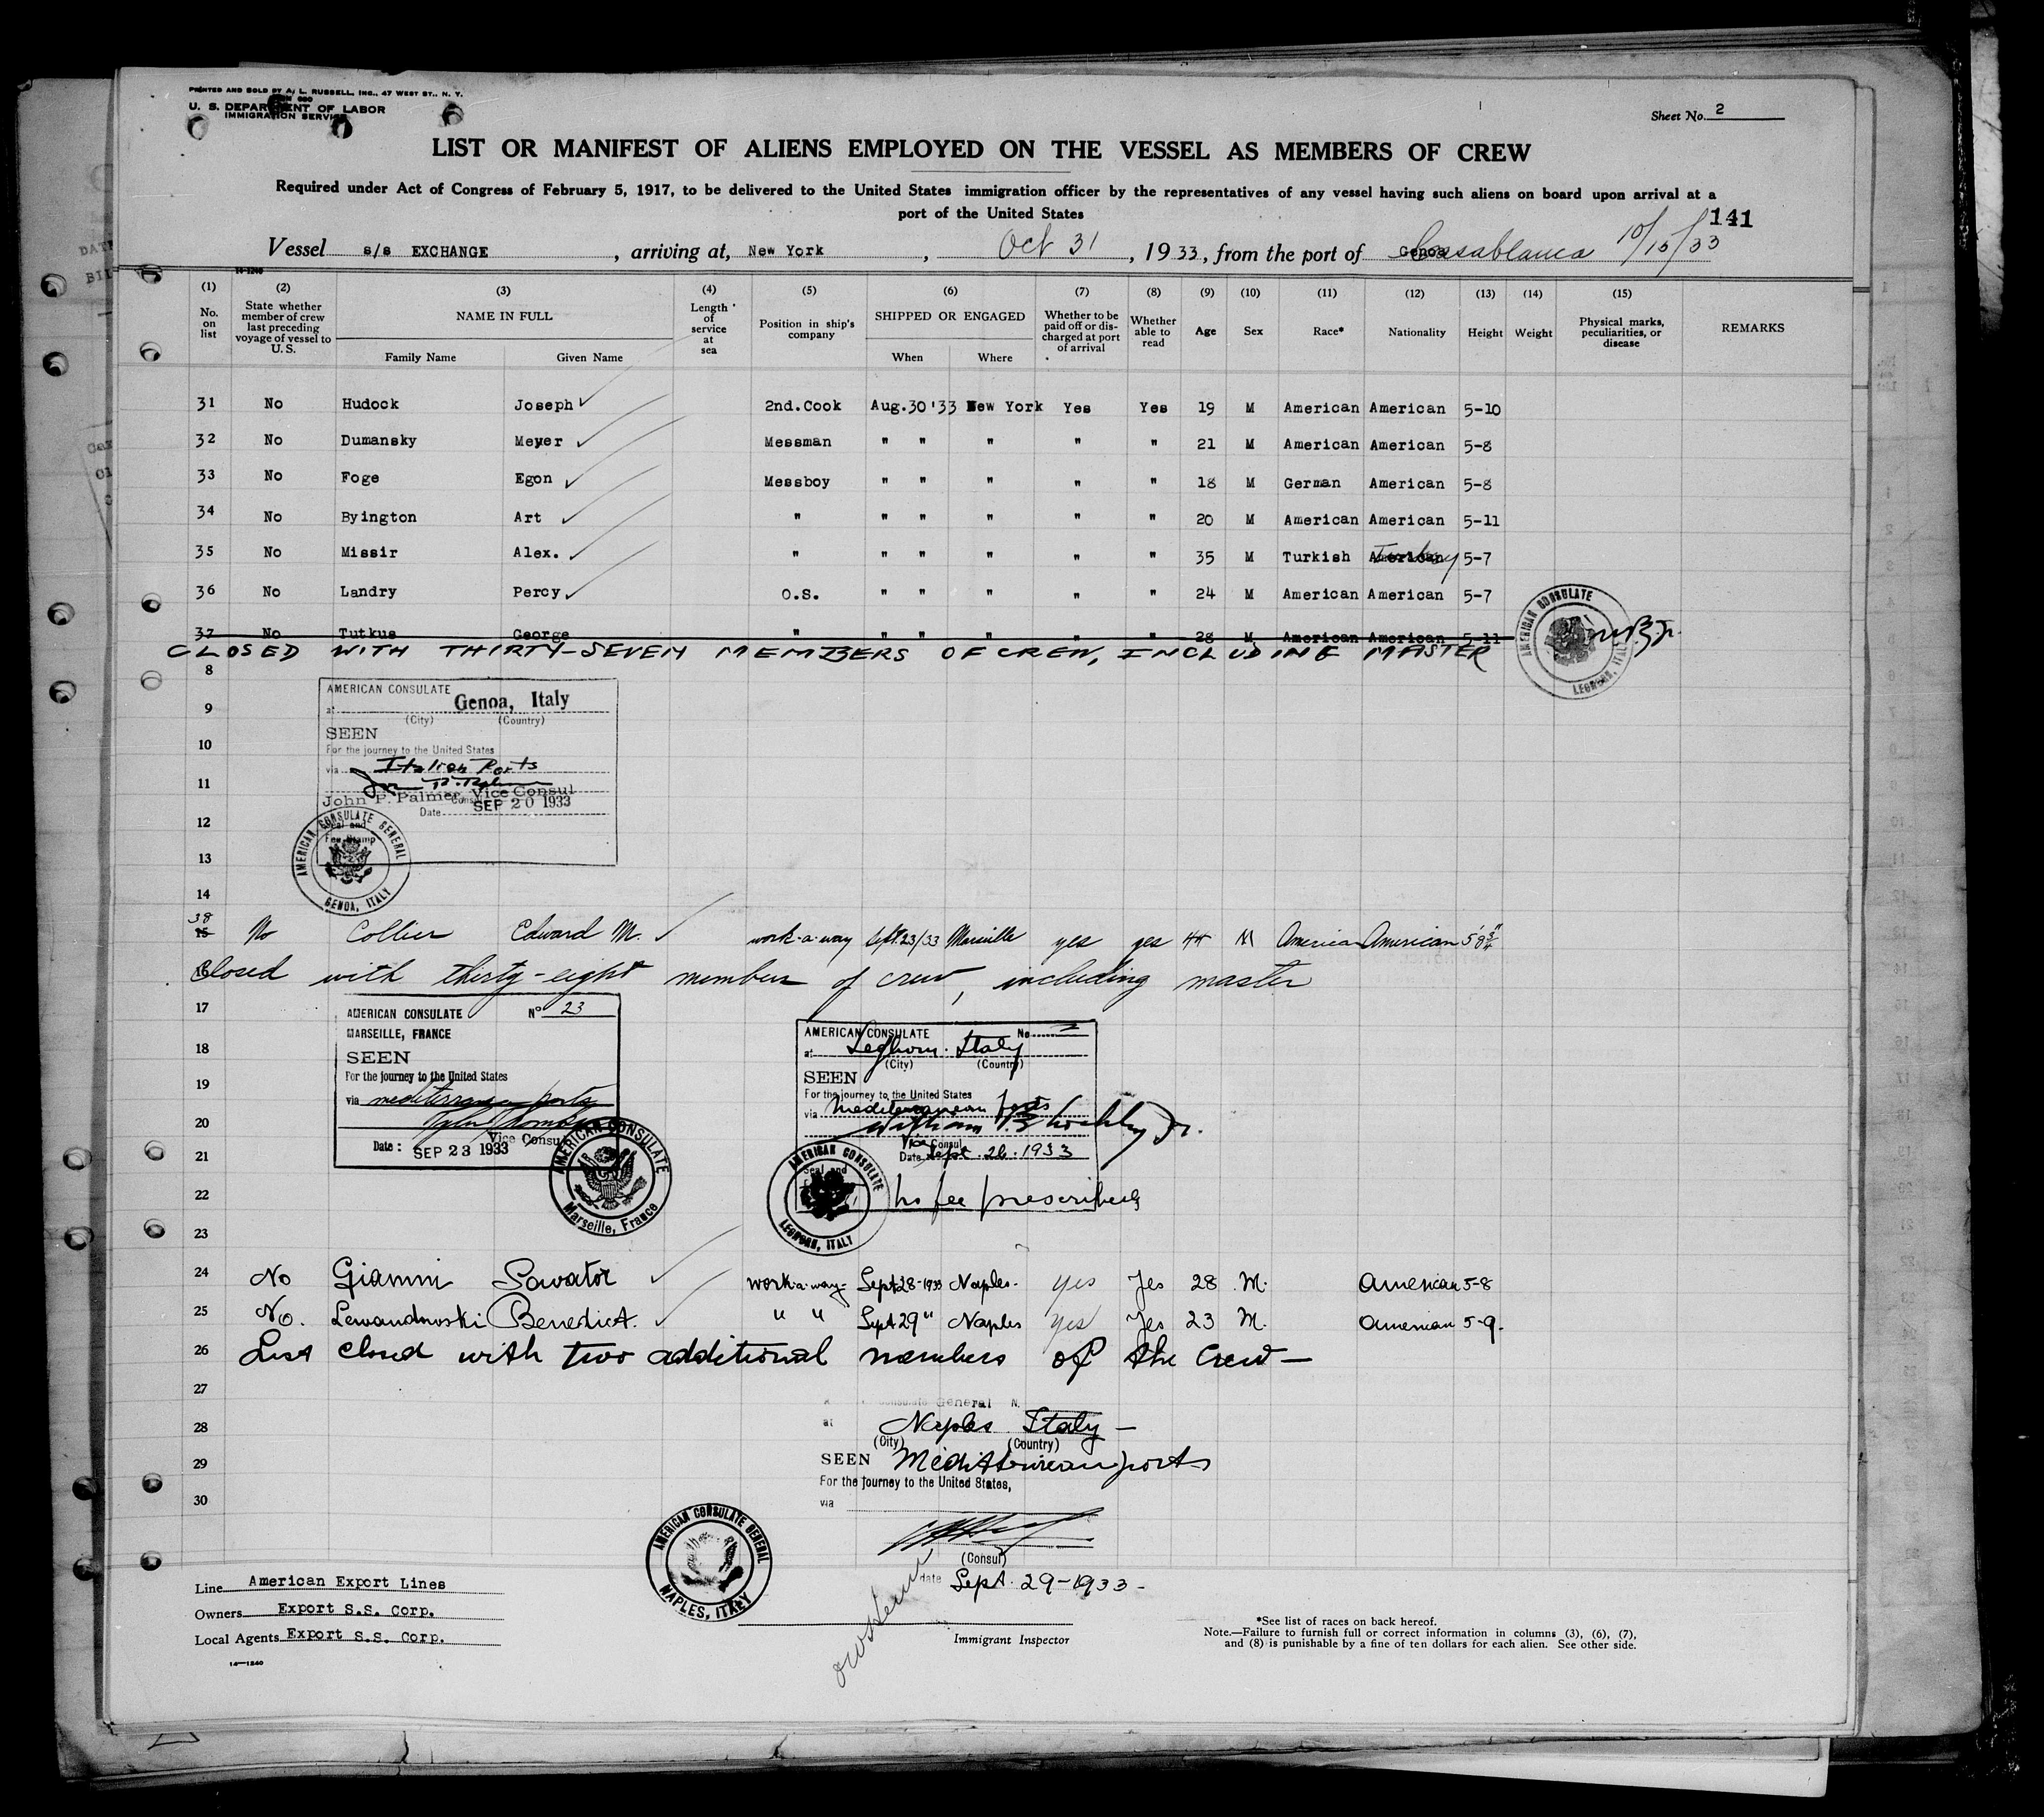 PRINTED AND SOLD BY A. L. RUSSELL, INC., 47 WEST ST., N. Y.
U. S. DEPARTMENT OF LABOR
IMMIGRATION SERVICE
Sheet No. 2
LIST OR MANIFEST OF ALIENS EMPLOYED ON THE VESSEL AS MEMBERS OF CREW
Required under Act of Congress of February 5, 1917, to be delivered to the United States immigration officer by the representatives of any vessel having such aliens on board upon arrival at a
port of the United States
141
Vessel s/s EXCHANGE, arriving at, New York, Oct 31, 1933, from the port of Genoa Casablanca 10/15/33
14-1240
(1) (2) (3) (4) (5) (6) (7) (8) (9) (10) (11) (12) (13) (14) (15)
No. on list
State whether member of crew last preceding voyage of vessel to U. S.
NAME IN FULL
Family Name Given Name
Length of service at sea
Position in ship's company
SHIPPED OR ENGAGED
When Where
Whether to be paid off or discharged at port of arrival
Whether able to read
Age Sex Race* Nationality Height Weight
Physical marks, peculiarities, or disease
REMARKS
31 No Hudock Joseph 2nd.Cook Aug.30'33 New York Yes Yes 19 M American American 5-10
32 No Dumansky Meyer Messman " " " " " 21 M American American 5-8
33 No Foge Egon Messboy " " " " " 18 M German American 5-8
34 No Byington Art " " " " " " 20 M American American 5-11
35 No Missir Alex. " " " " " " 35 M Turkish American Turkey 5-7
36 No Landry Percy O.S. " " " " " 24 M American American 5-7
37 No Tutkus George " " " " " " 28 M American American 5-11
CLOSED WITH THIRTY-SEVEN MEMBERS OF CREW, INCLUDING MASTER
AMERICAN CONSULATE LEGHORN, ITALY
8
AMERICAN CONSULATE
9
at Genoa, Italy
(City) (Country)
SEEN
10
For the journey to the United States
via Italian Ports
11
John P. Palmer, Vice Consul
Consul
SEP 20 1933
Date
12
Seal and
Fee Stamp
AMERICAN CONSULATE GENERAL GENOA, ITALY
13
14
38 15 No Collier Edward M. work-a-way Sept.23/33 Marseille yes yes 44 M American American 5'8¾"
16
Closed with thirty-eight members of crew, including master
17
AMERICAN CONSULATE No 23
MARSEILLE, FRANCE
SEEN
For the journey to the United States
via mediterranean ports
Vice Consul
Date: SEP 23 1933
AMERICAN CONSULATE Marseille, France
AMERICAN CONSULATE No
18
at Leghorn. Italy
(City) (Country)
SEEN
19
For the journey to the United States
via Mediterranean ports
20
Vice Consul
21
Date Sept. 26. 1933
Seal and
AMERICAN CONSULATE LEGHORN, ITALY
22
no fee prescribed
23
24 No Giamm Savator work-a-way- Sept 28-1933 Naples- yes Yes 28 M. American 5-8
25 No. Lewandowski Benedict. " " Sept 29 " Naples yes Yes 23 M. American 5-9.
26 List closed with two additional members of the crew—
27
Consulate General N.
28
at Naples Italy —
(City) (Country)
29
SEEN Mediterranean ports
For the journey to the United States,
30
via
(Consul)
date Sept. 29-1933-
AMERICAN CONSULATE GENERAL NAPLES, ITALY
Line American Export Lines
Owners Export S.S. Corp.
Local Agents Export S.S. Corp.
14—1240
Immigrant Inspector
*See list of races on back hereof.
Note.—Failure to furnish full or correct information in columns (3), (6), (7),
and (8) is punishable by a fine of ten dollars for each alien. See other side.